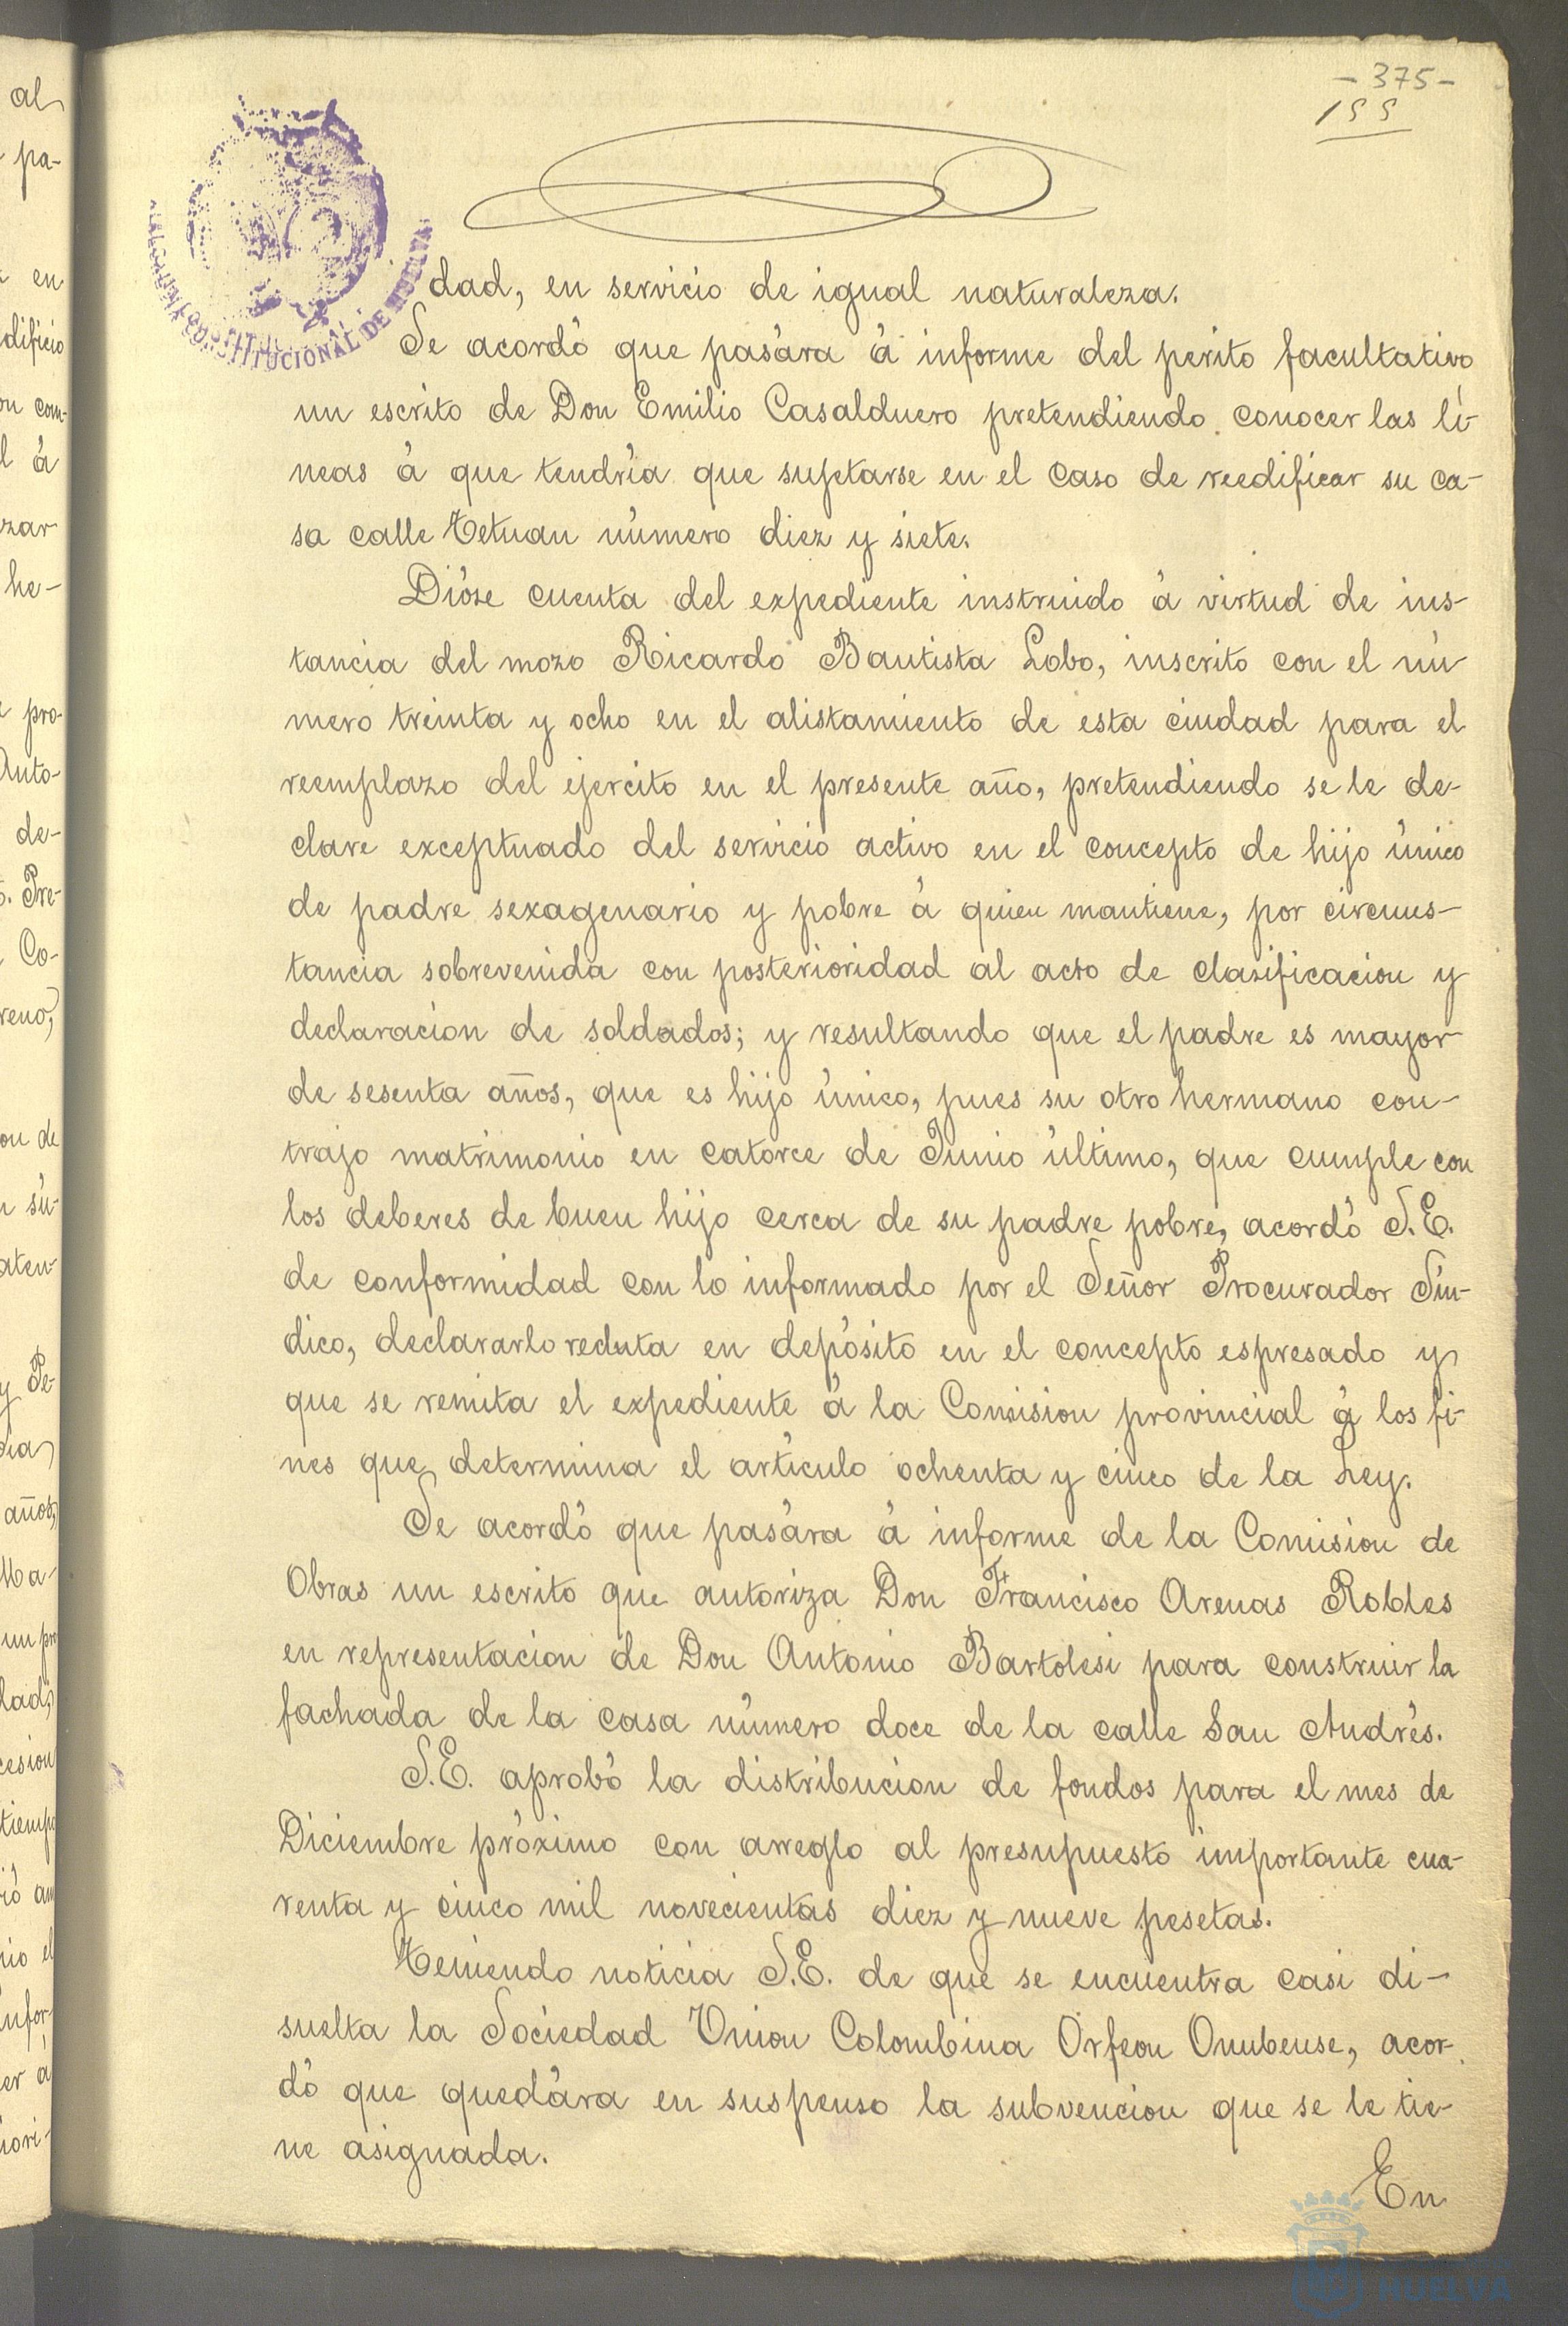 - 375 -
155
dad, en servicio de igual naturaleza.
Se acordó que pasára á informe del perito facultativo
un escrito de Don Emilio Casalduero pretendiendo conocer las lí-
neas á que tendría que sujetarse en el caso de reedificar su ca-
sa calle Tetuan número diez y siete.
Dióse cuenta del expediente instruido á virtud de ins-
tancia del mozo Ricardo Bautista Lobo, inscrito con el nú-
mero treinta y ocho en el alistamiento de esta ciudad para el
reemplazo del ejercito en el presente año, pretendiendo se le de-
clare exceptuado del servicio activo en el concepto de hijo único
de padre sexagenario y pobre á quien mantiene, por circuns-
tancia sobrevenida con posterioridad al acto de clasificacion y
declaracion de soldados; y resultando que el padre es mayor
de sesenta años, que es hijo único, pues su otro hermano con-
trajo matrimonio en catorce de Junio último, que cumple con
los deberes de buen hijo cerca de su padre pobre, acordó S.E.
de conformidad con lo informado por el Señor Procurador Sín-
dico, declararlo recluta en depósito en el concepto espresado y
que se remita el expediente á la Comision provincial á los fi-
nes que determina el artículo ochenta y cinco de la Ley.
Se acordó que pasára á informe de la Comision de
Obras un escrito que autoriza Don Francisco Arenas Robles
en representacion de Don Antonio Bartolesi para construir la
fachada de la casa número doce de la calle San Andrés.
S.E. aprobó la distribucion de fondos para el mes de
Diciembre próximo con arreglo al presupuesto importante cua-
renta y cinco mil novecientas diez y nueve pesetas.
Teniendo noticia S.E. de que se encuentra casi di-
suelta la Sociedad Union Colombina Orfeon Onubense, acor-
dó que quedára en suspenso la subvencion que se le tie-
ne asignada.
En
CONSTITUCIONAL DE HUELVA
HUELVA